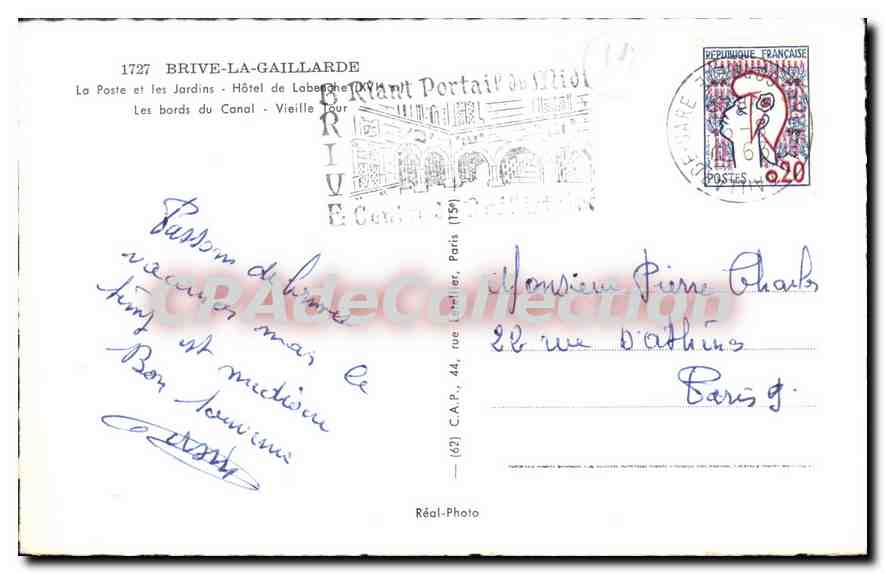 1727 BRIVE-LA-GAILLARDE
La Poste et les Jardins - Hôtel de Labenche (XVIe)
Les bords du Canal - Vieille Tour
BRIVE
Riant Portail du Midi
REPUBLIQUE FRANÇAISE
POSTES 0,20
Passons de bonnes
vacances mais le
temps est médiocre
Bon souvenir
CPAdeCollection
— (62) C.A.P., 44, rue Letellier, Paris (15e)
Monsieur Pierre Charles
22 rue d'Athènes
Paris 9.
Réal-Photo